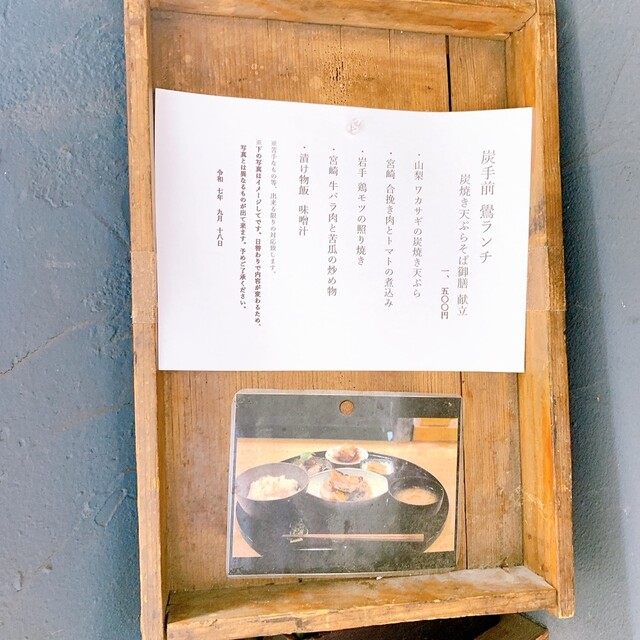 炭手前 鷽ランチ
炭焼き天ぷらそば御膳 献立
一、五〇〇円
・山梨 ワカサギの炭焼き天ぷら
・宮崎 合挽き肉とトマトの煮込み
・岩手 鶏モツの照り焼き
・宮崎 牛バラ肉と苦瓜の炒め物
・漬け物飯 味噌汁
※苦手なもの等、出来る限りの対応致します。
※下の写真はイメージしてです。日替わりで内容が変わるため、
写真とは異なるものが出て来ます。予めご了承ください。
令和 七年 九月 十八日